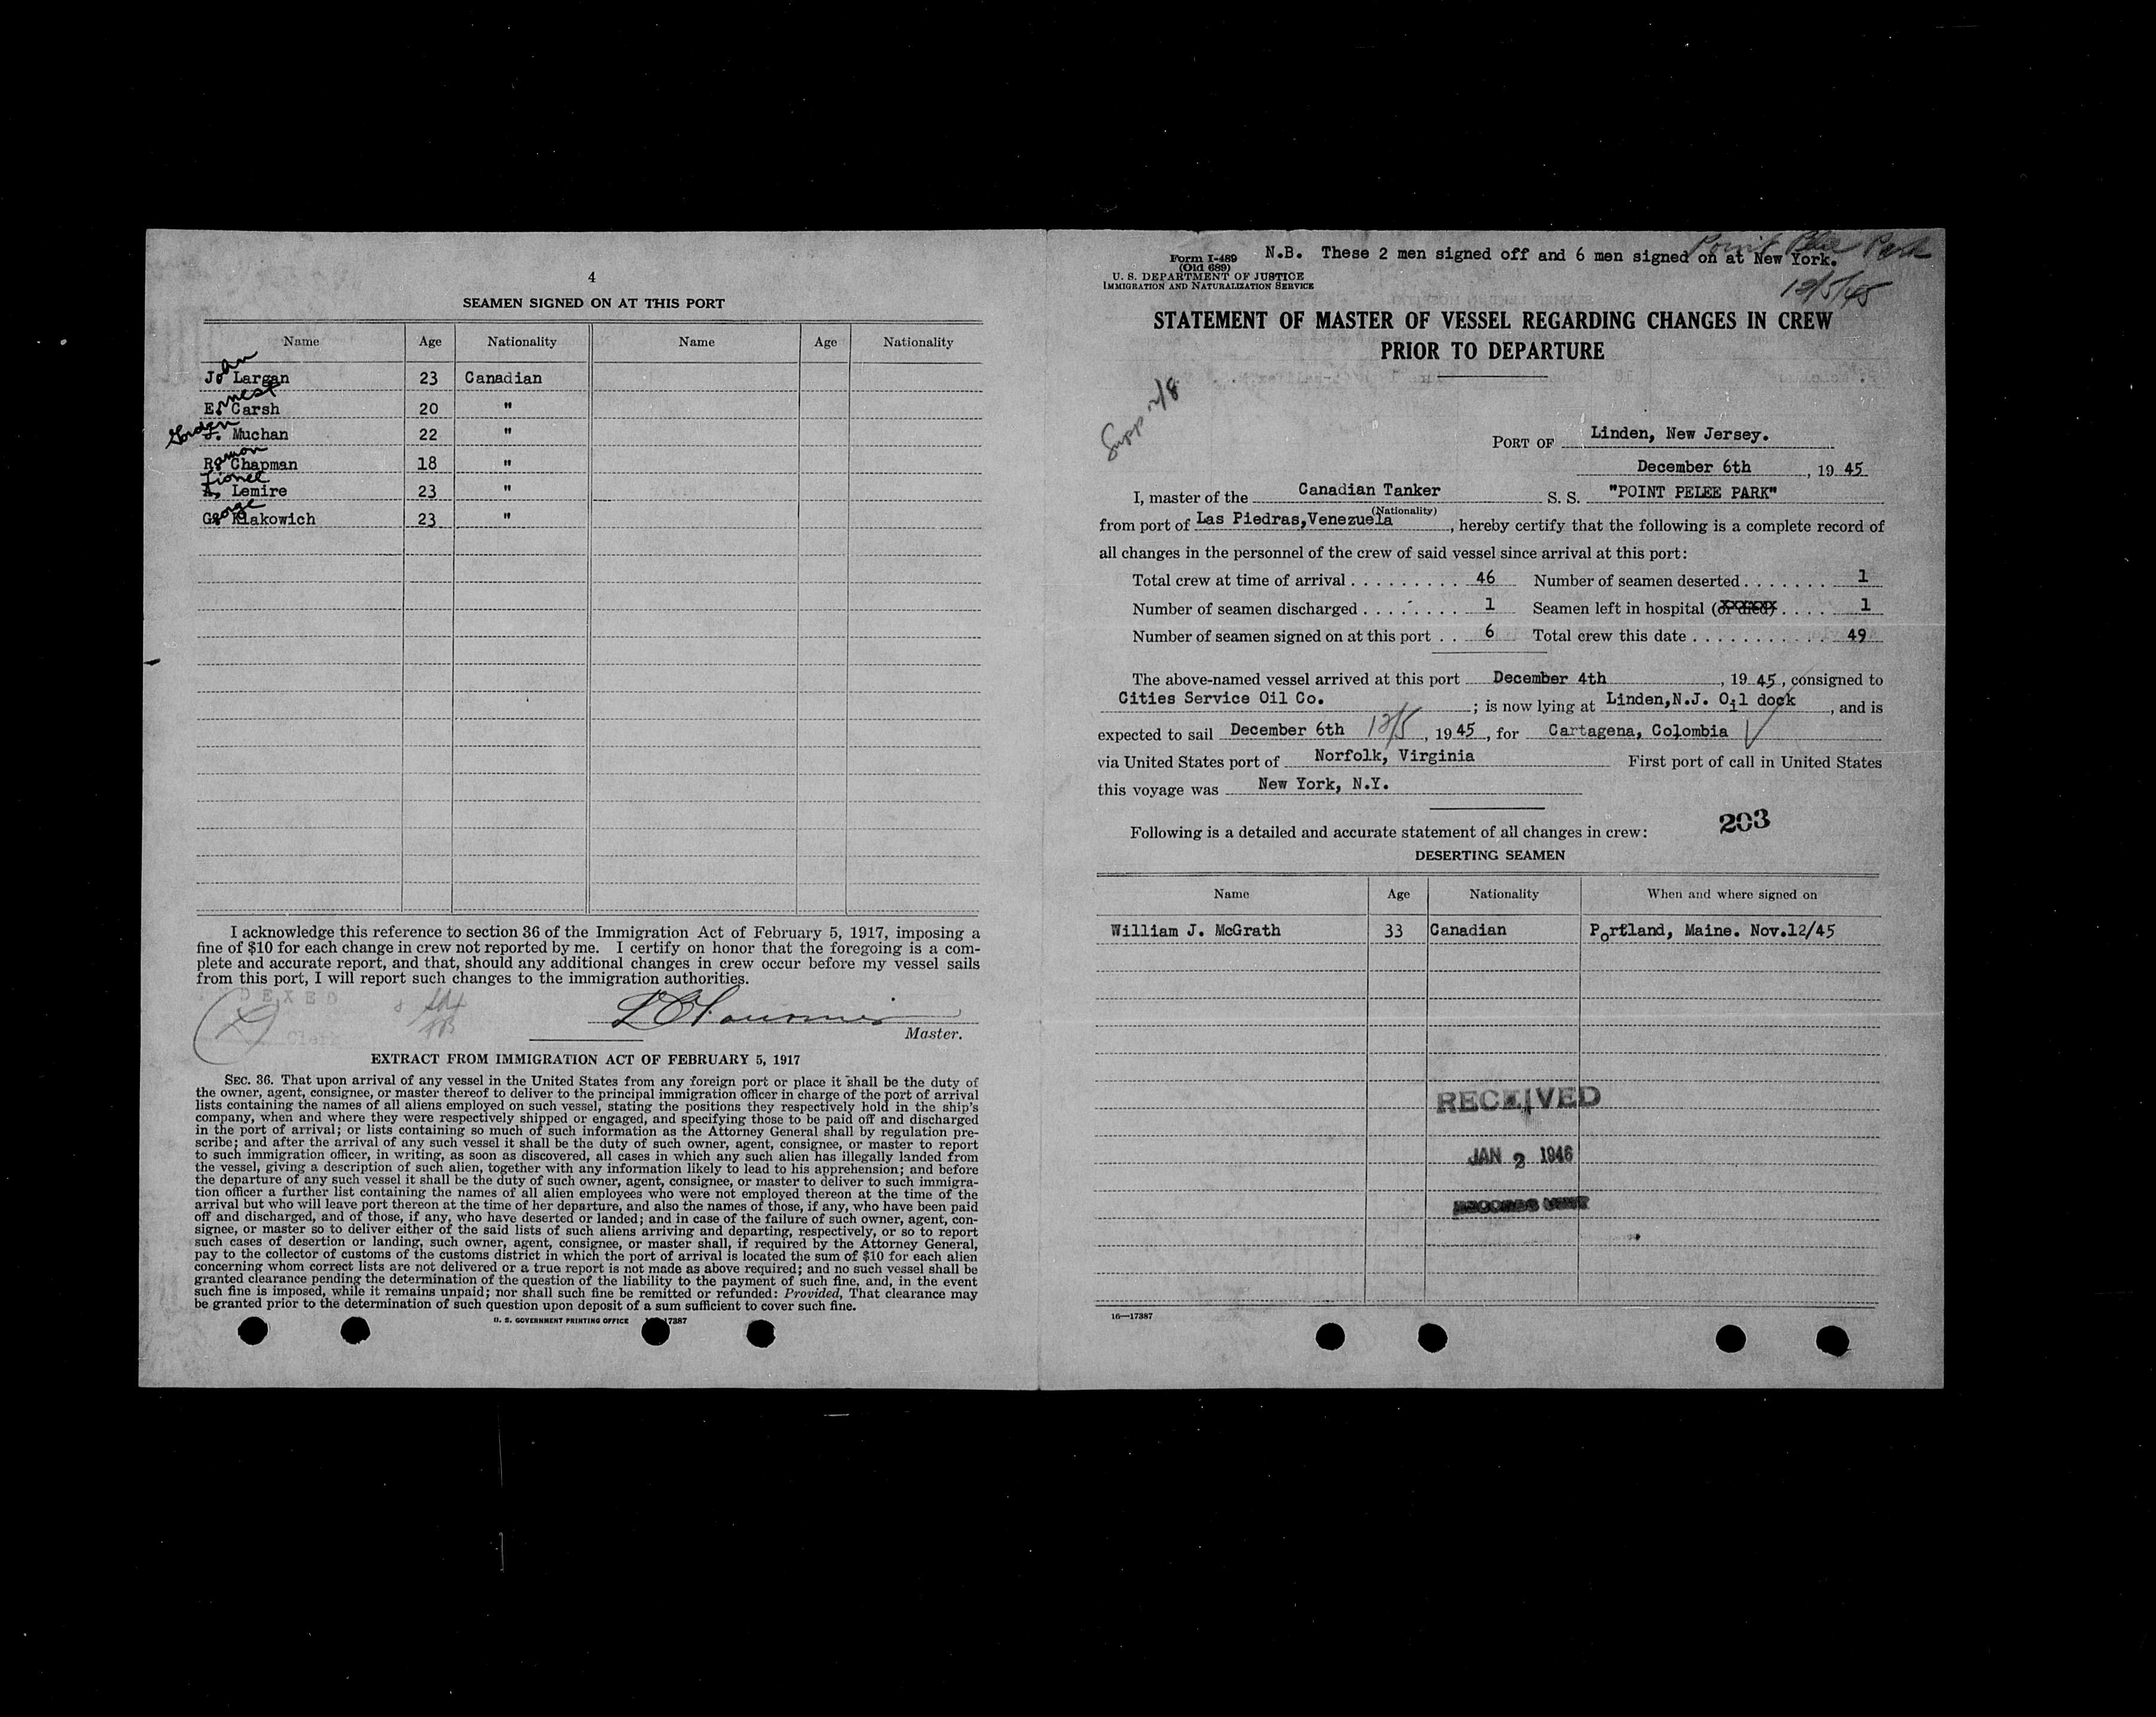 4
SEAMEN SIGNED ON AT THIS PORT
Name Age Nationality Name Age Nationality
John Largan 23 Canadian
Ernest Carsh 20 "
Gordon Muchan 22 "
Ramon Chapman 18 "
Lionel A. Lemire 23 "
George Klakowich 23 "
I acknowledge this reference to section 36 of the Immigration Act of February 5, 1917, imposing a
fine of $10 for each change in crew not reported by me. I certify on honor that the foregoing is a com-
plete and accurate report, and that, should any additional changes in crew occur before my vessel sails
from this port, I will report such changes to the immigration authorities.
INDEXED
Clerk
Master.
EXTRACT FROM IMMIGRATION ACT OF FEBRUARY 5, 1917
SEC. 36. That upon arrival of any vessel in the United States from any foreign port or place it shall be the duty of
the owner, agent, consignee, or master thereof to deliver to the principal immigration officer in charge of the port of arrival
lists containing the names of all aliens employed on such vessel, stating the positions they respectively hold in the ship's
company, when and where they were respectively shipped or engaged, and specifying those to be paid off and discharged
in the port of arrival; or lists containing so much of such information as the Attorney General shall by regulation pre-
scribe; and after the arrival of any such vessel it shall be the duty of such owner, agent, consignee, or master to report
to such immigration officer, in writing, as soon as discovered, all cases in which any such alien has illegally landed from
the vessel, giving a description of such alien, together with any information likely to lead to his apprehension; and before
the departure of any such vessel it shall be the duty of such owner, agent, consignee, or master to deliver to such immigra-
tion officer a further list containing the names of all alien employees who were not employed thereon at the time of the
arrival but who will leave port thereon at the time of her departure, and also the names of those, if any, who have been paid
off and discharged, and of those, if any, who have deserted or landed; and in case of the failure of such owner, agent, con-
signee, or master so to deliver either of the said lists of such aliens arriving and departing, respectively, or so to report
such cases of desertion or landing, such owner, agent, consignee, or master shall, if required by the Attorney General,
pay to the collector of customs of the customs district in which the port of arrival is located the sum of $10 for each alien
concerning whom correct lists are not delivered or a true report is not made as above required; and no such vessel shall be
granted clearance pending the determination of the question of the liability to the payment of such fine, and, in the event
such fine is imposed, while it remains unpaid; nor shall such fine be remitted or refunded: Provided, That clearance may
be granted prior to the determination of such question upon deposit of a sum sufficient to cover such fine.
U. S. GOVERNMENT PRINTING OFFICE 17387
Form I-489
(Old 689)
U. S. DEPARTMENT OF JUSTICE
IMMIGRATION AND NATURALIZATION SERVICE
N.B. These 2 men signed off and 6 men signed on at New York.
Point Park
12/5/45
STATEMENT OF MASTER OF VESSEL REGARDING CHANGES IN CREW
PRIOR TO DEPARTURE
Supp 12/8
PORT OF Linden, New Jersey.
December 6th, 1945
I, master of the Canadian Tanker S. S. "POINT PELEE PARK"
(Nationality)
from port of Las Piedras,Venezuela, hereby certify that the following is a complete record of
all changes in the personnel of the crew of said vessel since arrival at this port:
Total crew at time of arrival 46 Number of seamen deserted 1
Number of seamen discharged 1 Seamen left in hospital (or died) 1
Number of seamen signed on at this port 6 Total crew this date 49
The above-named vessel arrived at this port December 4th, 1945, consigned to
Cities Service Oil Co.; is now lying at Linden,N.J. Oil dock, and is
expected to sail December 6th 12/5, 1945, for Cartagena, Colombia
via United States port of Norfolk, Virginia First port of call in United States
this voyage was New York, N.Y.
203
Following is a detailed and accurate statement of all changes in crew:
DESERTING SEAMEN
Name Age Nationality When and where signed on
William J. McGrath 33 Canadian Portland, Maine. Nov.12/45
RECEIVED
JAN 2 1946
RECORDS UNIT
16—17387